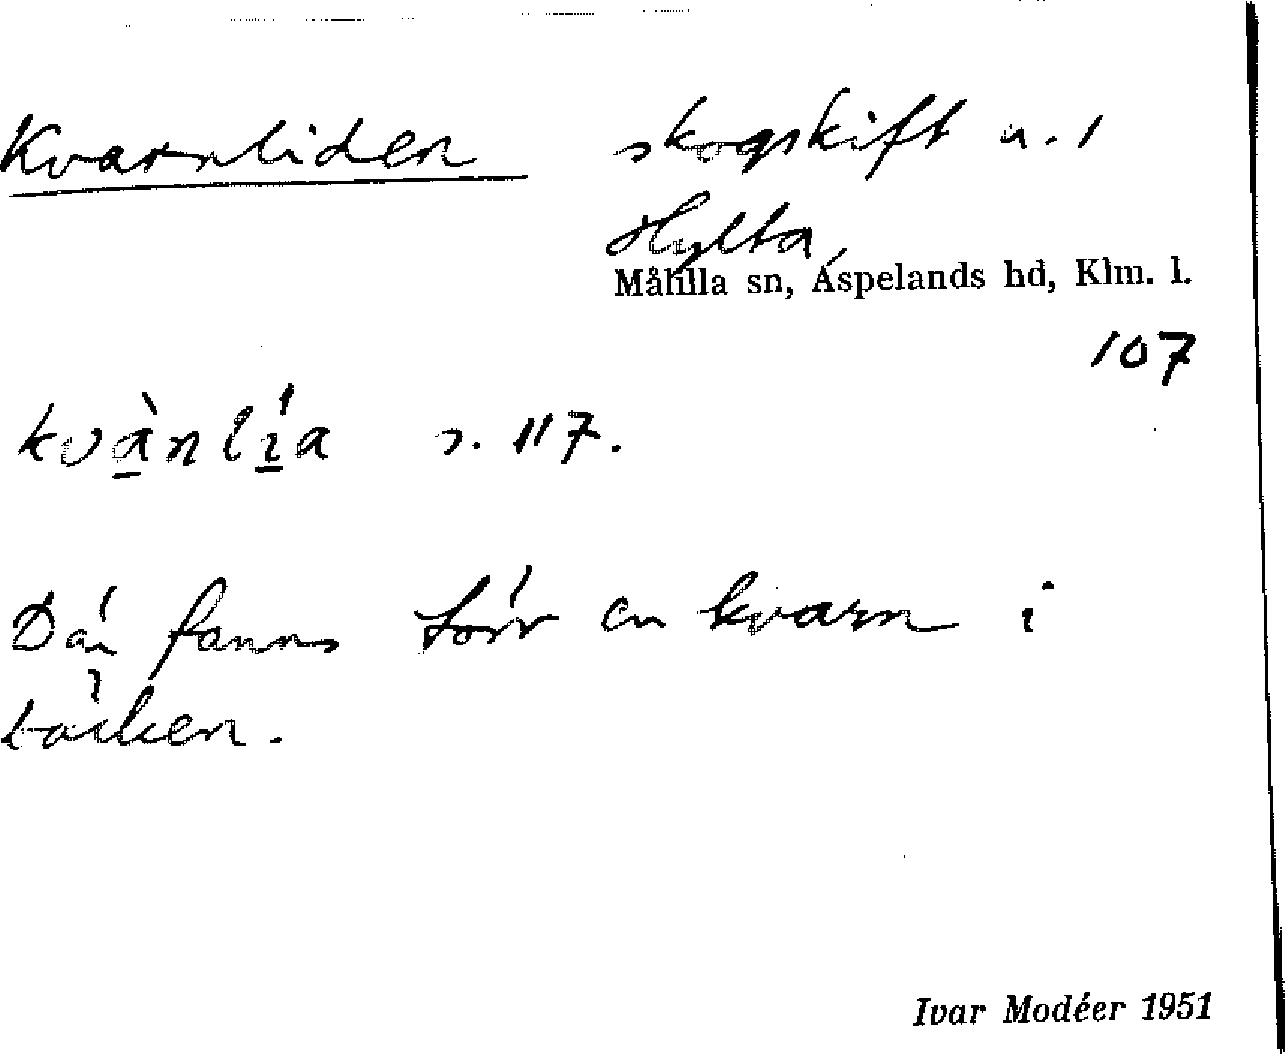 Kvarnliden skogskift n. 1
Hylta,
Målilla sn, Aspelands hd, Klm. l.
107
kvànlía s. 117.
Där fanns förr en kvarn i
bäcken.
Ivar Modéer 1951